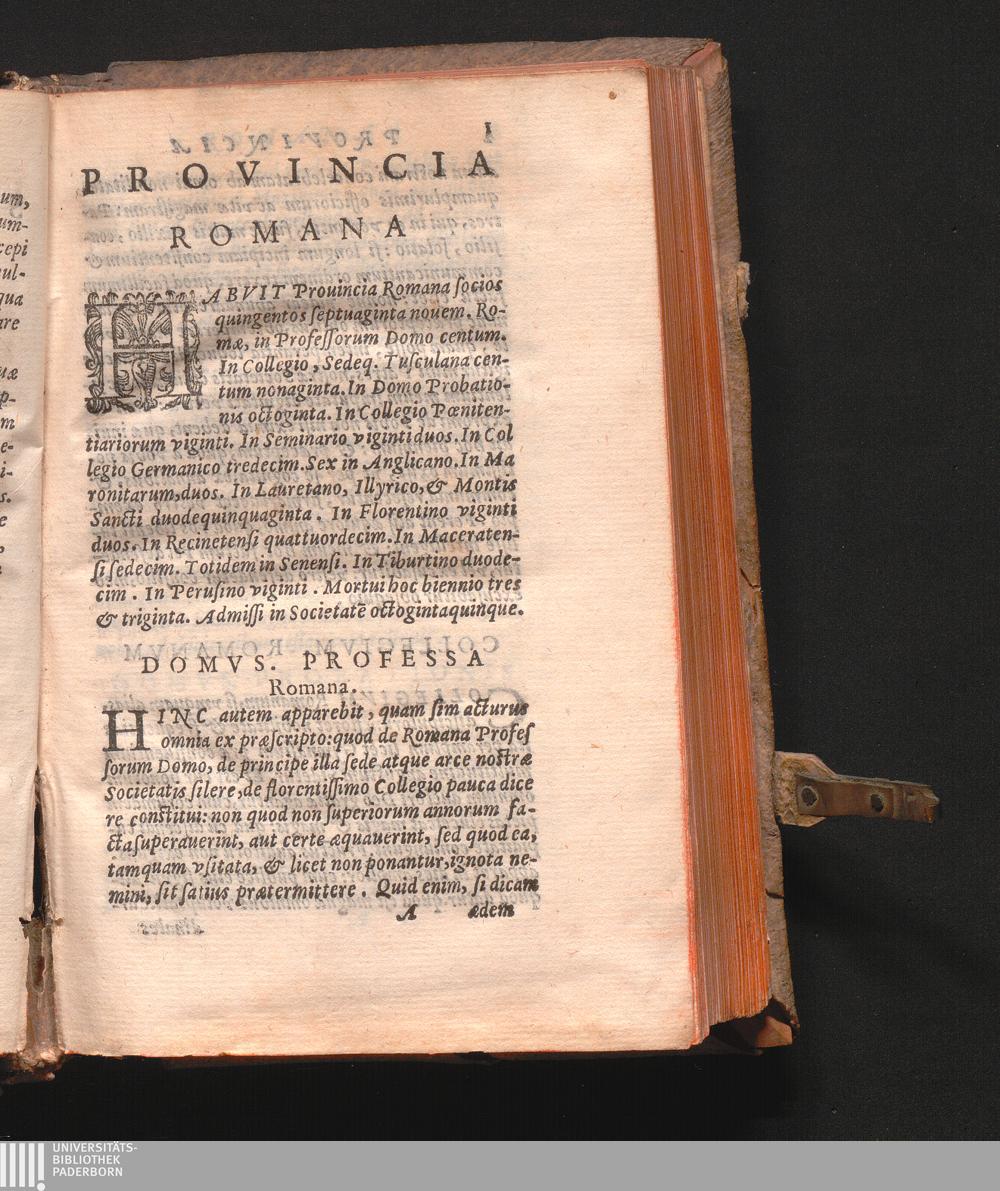 um,
um-
cepi
ul-
qua
are
uæ
p-
m
e-
i-
s.
e
1
PROVINCIA
ROMANA
HABVIT Prouincia Romana socios
quingentos septuaginta nouem. Ro-
mæ, in Professorum Domo centum.
In Collegio, Sedeq. Tusculana cen-
tum nonaginta. In Domo Probatio-
nis octoginta. In Collegio Pœniten-
tiariorum viginti. In Seminario vigintiduos. In Col
legio Germanico tredecim. Sex in Anglicano. In Ma
ronitarum, duos. In Lauretano, Illyrico, & Montis
Sancti duodequinquaginta. In Florentino viginti
duos. In Recinetensi quattuordecim. In Maceraten-
si sedecim. Totidem in Senensi. In Tiburtino duode-
cim. In Perusino viginti. Mortui hoc biennio tres
& triginta. Admissi in Societatē octogintaquinque.
DOMVS. PROFESSA
Romana.
HINC autem apparebit, quam sim acturus
omnia ex præscripto: quod de Romana Profes
sorum Domo, de principe illa sede atque arce nostræ
Societatis silere, de florentissimo Collegio pauca dice
re constitui: non quod non superiorum annorum fa-
cta superauerint, aut certe æquauerint, sed quod ea,
tamquam vsitata, & licet non ponantur, ignota ne-
mini, sit satius prætermittere. Quid enim, si dicam
A ædem
UNIVERSITÄTS-
BIBLIOTHEK
PADERBORN